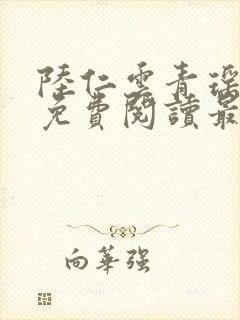 陸仁雲青瑶
免費閱讀最
向華強